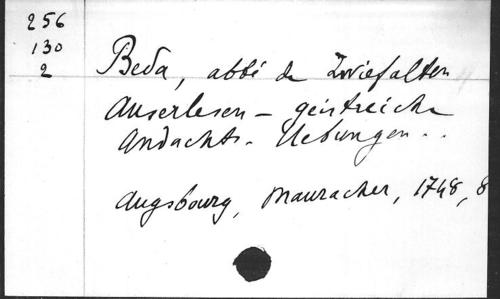 256
130
2
Beda, abbé de Zwiefalten
Auserlesen - geistreiche
Andachts - Uebungen ..
Augsbourg, Mauracher, 1748, 8